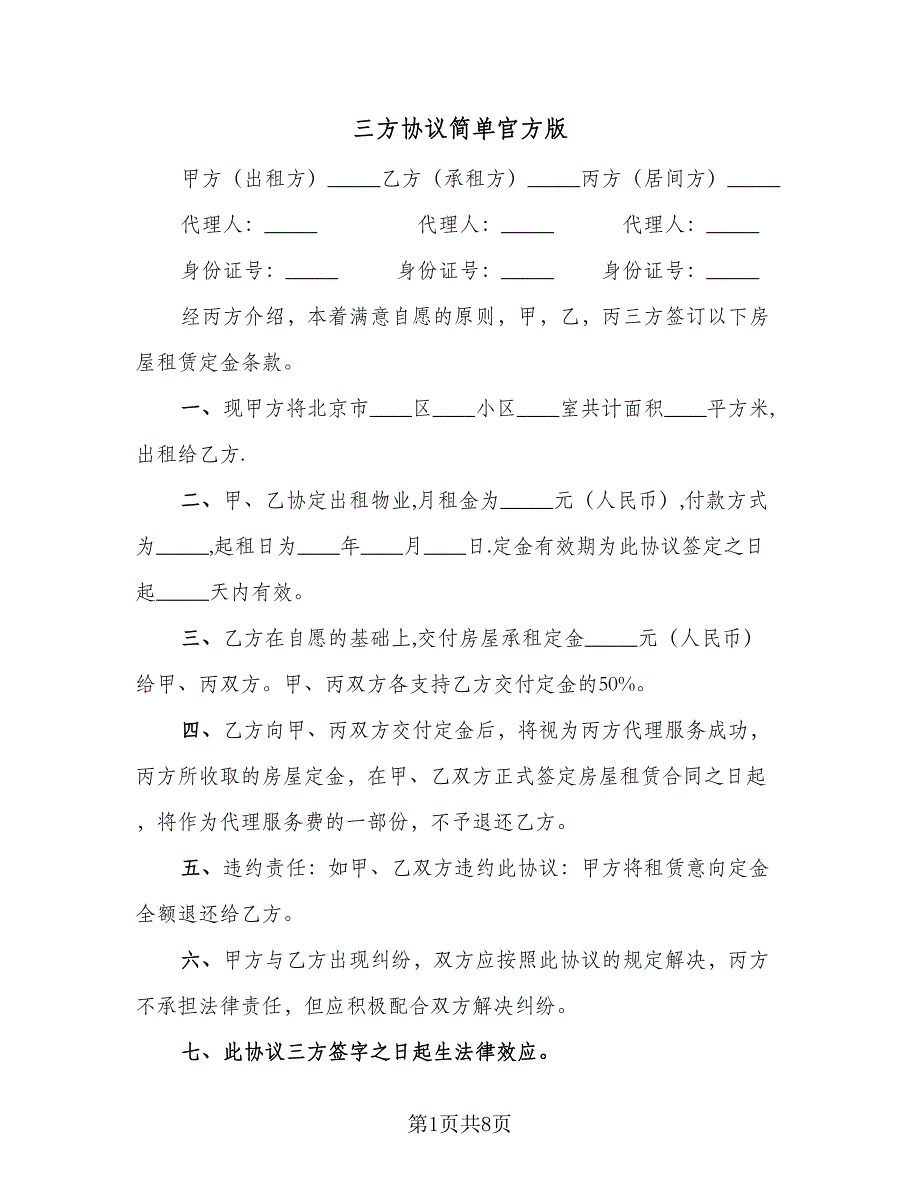 三方协议简单官方版
甲方（出租方）_____乙方（承租方）_____丙方（居间方）_____
代理人：_____ 代理人：_____ 代理人：_____
身份证号：_____ 身份证号：_____ 身份证号：_____
经丙方介绍，本着满意自愿的原则，甲，乙，丙三方签订以下房
屋租赁定金条款。
一、现甲方将北京市____区____小区____室共计面积____平方米,
出租给乙方.
二、甲、乙协定出租物业,月租金为_____元（人民币）,付款方式
为_____,起租日为____年____月____日.定金有效期为此协议签定之日
起_____天内有效。
三、乙方在自愿的基础上,交付房屋承租定金_____元（人民币）
给甲、丙双方。甲、丙双方各支持乙方交付定金的50%。
四、乙方向甲、丙双方交付定金后，将视为丙方代理服务成功，
丙方所收取的房屋定金，在甲、乙双方正式签定房屋租赁合同之日起
，将作为代理服务费的一部份，不予退还乙方。
五、违约责任：如甲、乙双方违约此协议：甲方将租赁意向定金
全额退还给乙方。
六、甲方与乙方出现纠纷，双方应按照此协议的规定解决，丙方
不承担法律责任，但应积极配合双方解决纠纷。
七、此协议三方签字之日起生法律效应。
第1页共8页